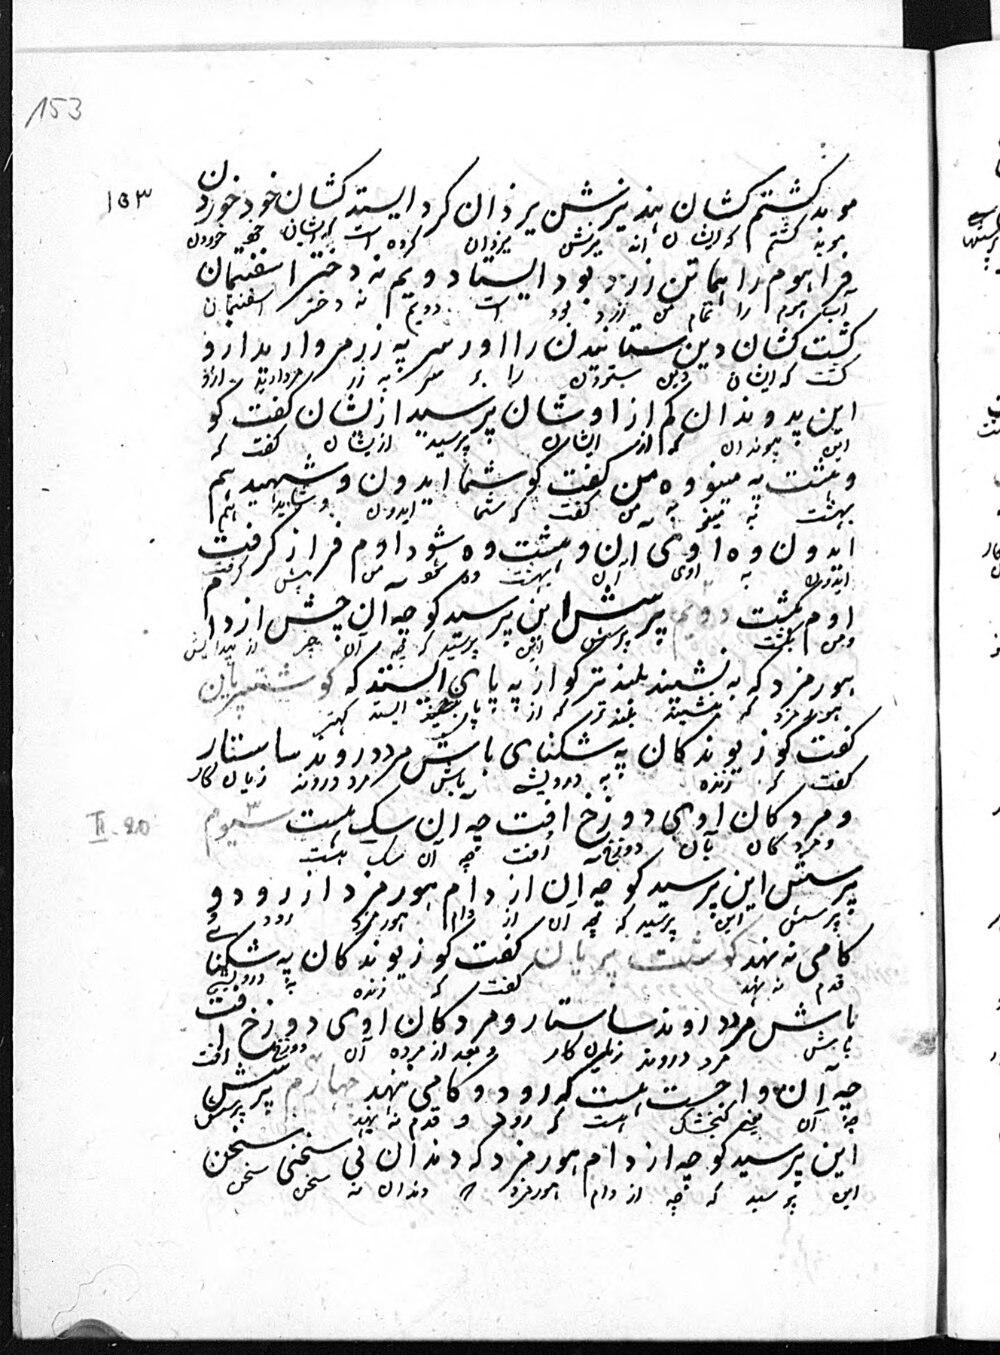 153
١٥٣
موبد کشتم کشان هند یزشن یزدان کرد ایستد کشان خود خوردن
موبد کشتم که ایشان اند یزشن یزدان کرده است که ایشان خود خوردن
فرا هوم را هما تن زرد بود ایستاد دویم نه دختر اسفنتمان
آب هوم را تمام تن زرد بود است دویم نه دختر اسفنتمان
کشت کشان دین ستانیدن را اور سر په زر مروارید ارو
کشت که ایشان دین ستودن را بر سر به زر مروارید ارو
این پدوندان کم از اوشان پرسید ازشان کفت کو
این پیوندان که از ایشان پرسید ازیشان کفت که
وهشت په مینو وه من کفت کو شما ایدون و شهید هم
بهشت به مینو به من کفت که شما ایدون و شاید هم
ایدون وه اوی آن وهشت وه شود اوم فراز کرفت
ایدون به اوی آن بهشت وه شو من پیش کرفت
اوم کشت دویم پرسش این پرسید کو چه آن چش از دام
ومن کشت پرسش این پرسید که چه آن چیز از پیدایش
هورمزد که به نشیند بلند تر کو از په پای ایستد که کوشت پریان
هورمزد که نشیند بلند تر که از پای ایستد
کفت کو زیوندکان په شکنای باش مرد دروند ساستار
کفت که زنده به درویشی باش مرد دروند زیان کار
و مردکان اوی دوزخ افت چه آن سک هست سیوم
و مردکان بآن دوزخ افت چه آن سک هست
II. 20
پرسش این پرسید کو چه آن از دام هورمزد از رود و
پرسش این پرسید که چه آن از دام هورمزد رود و
کامی نه نهد کوشت پریان کفت کو زیوندکان په شکنای
قدم نه نهد کفت که زنده به درویشی
باش مرد دروند ساستار و مردکان اوی دوزخ افت
باش مرد دروند زیان کار و بعد از مرده آن دوزخ افت
چه آن واجست هست که رود و کامی نهد چهارم پرسش
چه آن کنجشک است که رود و قدم نه نهد پرسش
این پرسید کو چه از دام هورمزد که دندان نی سخنی سخن
این پرسید که چه از دام هورمزد که دندان نه سخن سخن